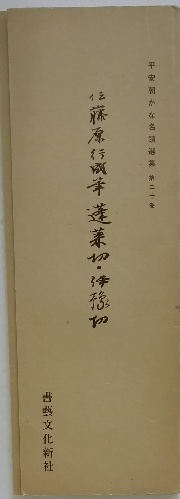 平安朝かな名蹟選集 第二十巻
伝藤原行成筆 蓬萊切・伊豫切
書藝文化新社